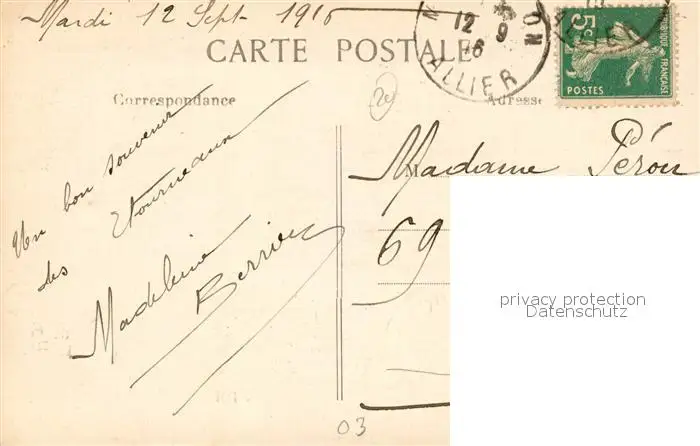 Mardi 12 Sept 1916
CARTE POSTALE
Correspondance
Adresse
12
9
16
ON
ALLIER
5c
REPUBLIQUE FRANÇAISE
POSTES
20
Un bon souvenir
des Etourneaux
Madeleine
Berrier
Madame Péron
69
privacy protection
Datenschutz
03